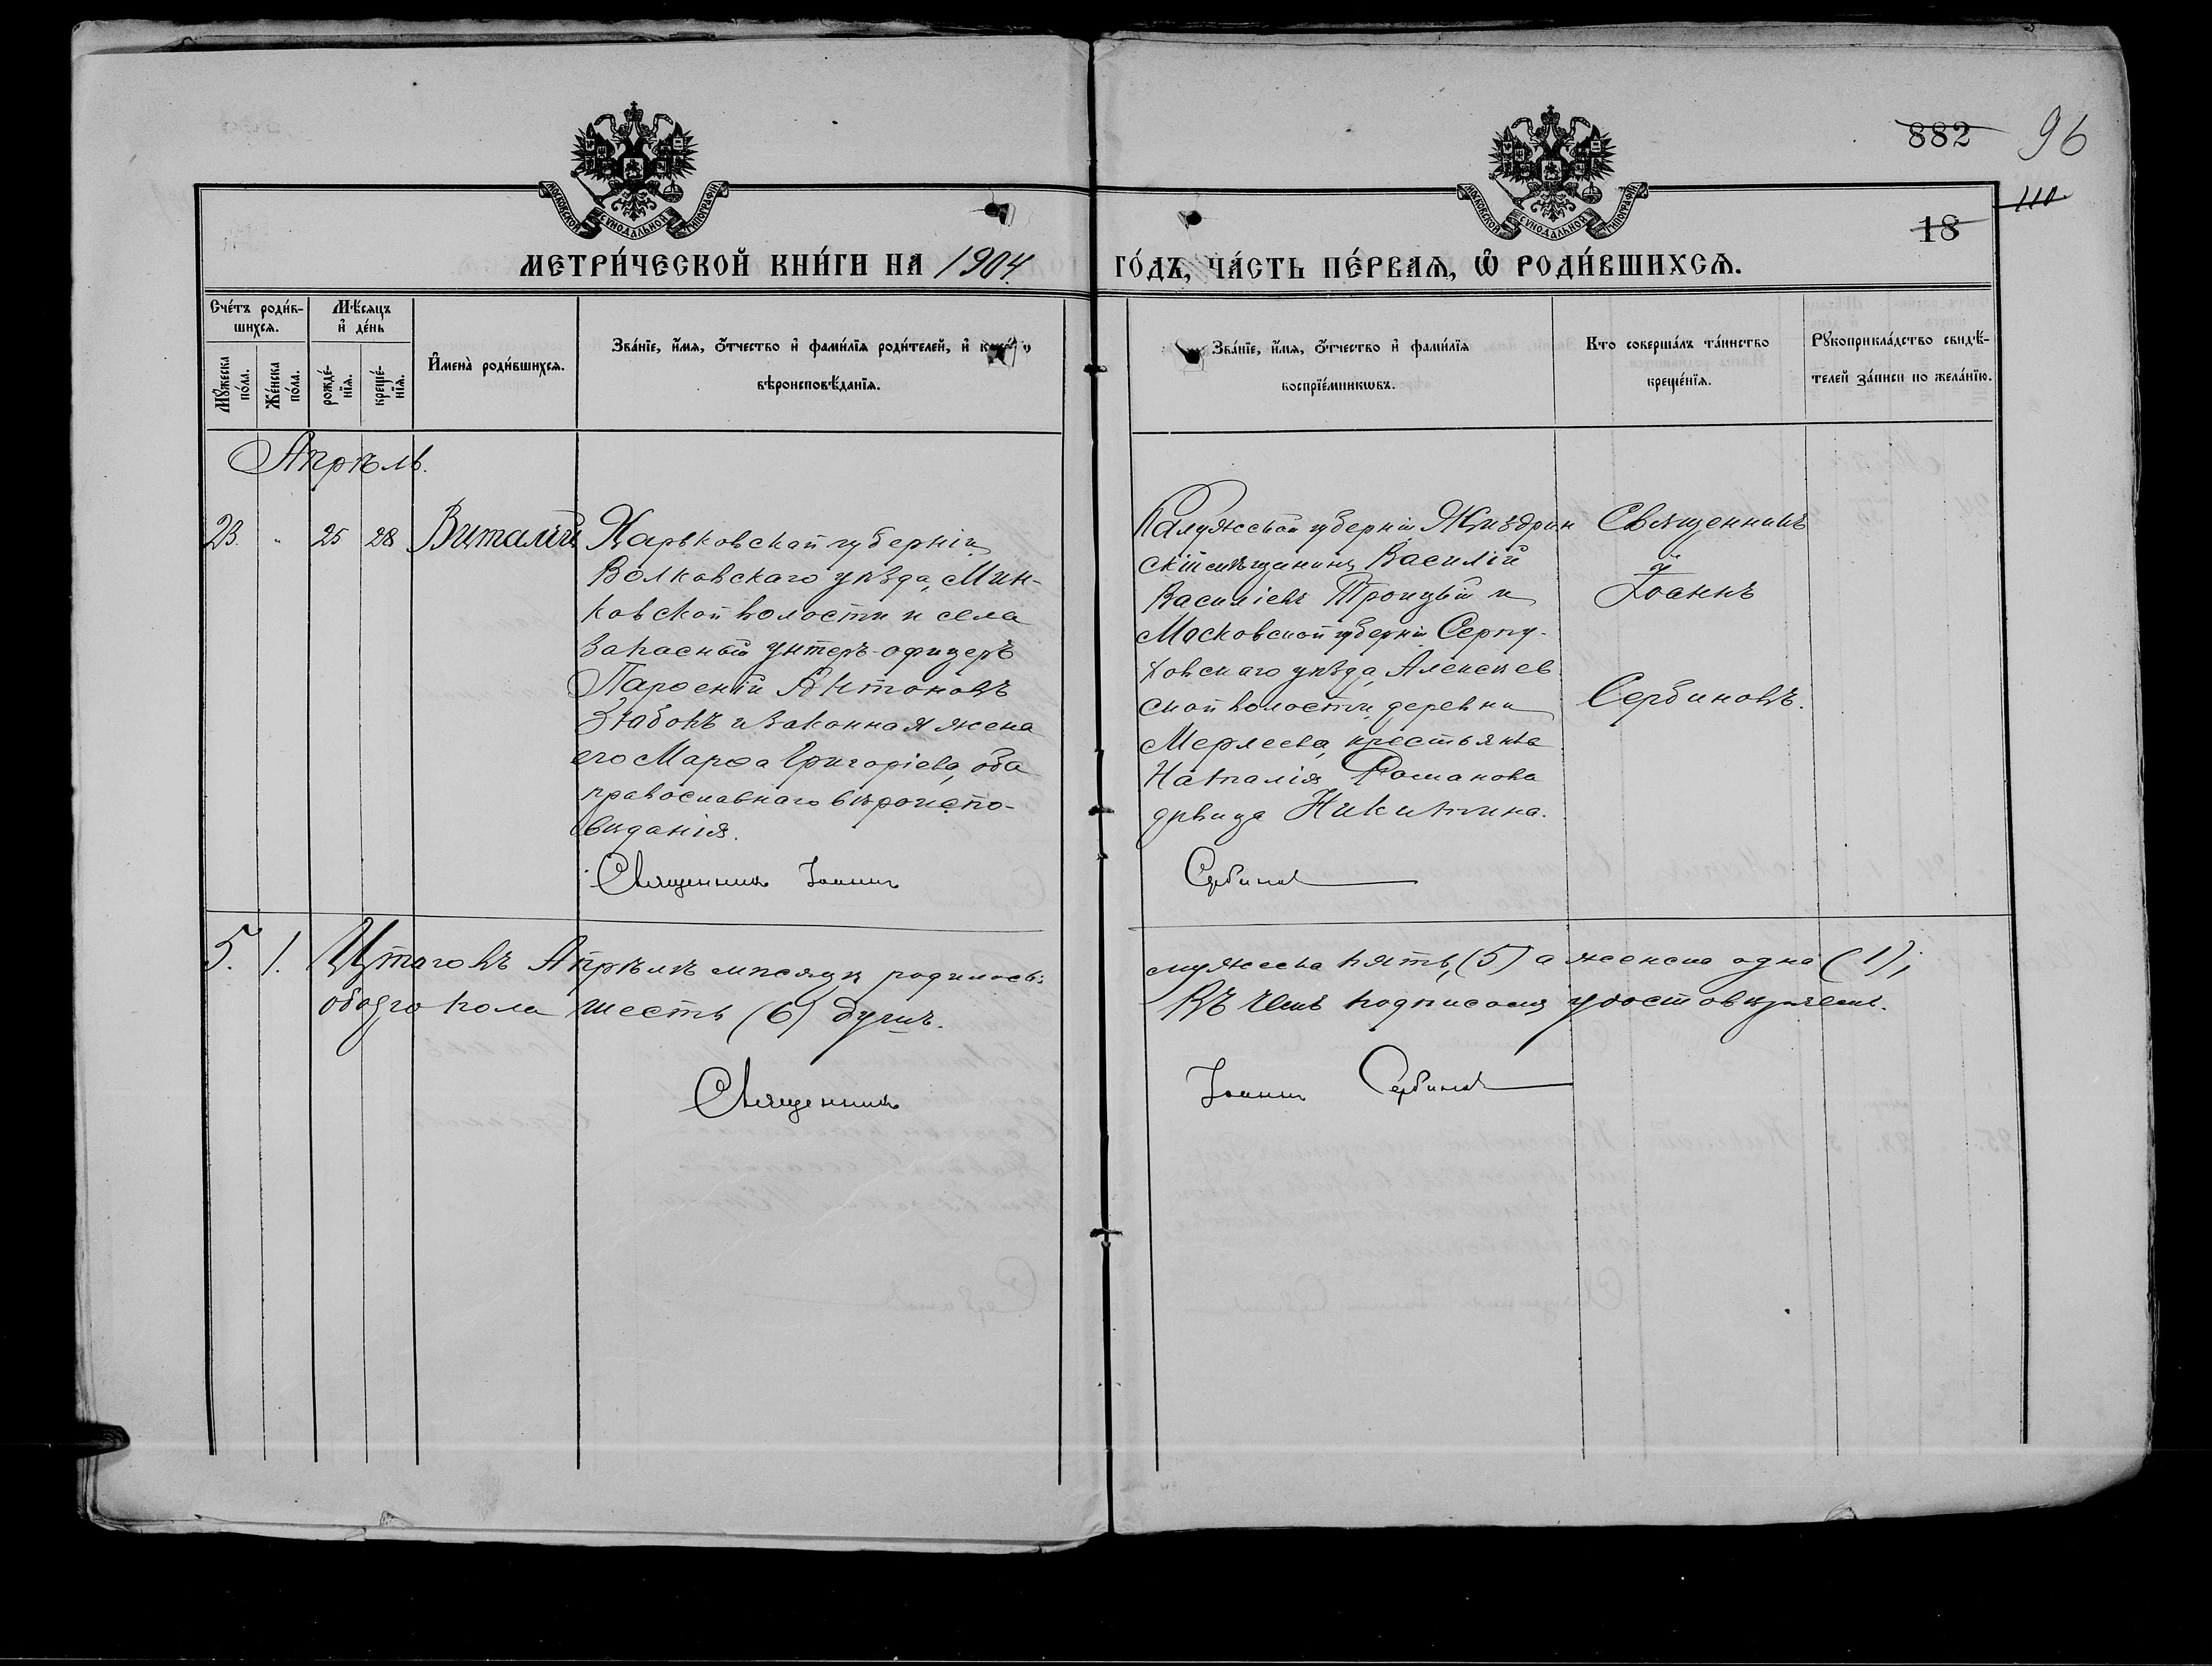 882 96
110.
18
МОСКОВСКОЙ СУНОДАЛЬНОЙ ТИПОГРАФІИ
МОСКОВСКОЙ СУНОДАЛЬНОЙ ТИПОГРАФІИ
МЕТРИ́ЧЕСКОЙ КНИ́ГИ НА 1904 ГО́ДЪ, ЧА́СТЬ ПЕ́РВАѦ, Ѽ РОДИ́ВШИХСѦ.
Сче́тъ роди́в-
шихсѧ.
Мꙋ́жеска
по́ла.
Же́нска
по́ла.
Мѣ́сѧцъ
и҆ де́нь
рожде́-
нїѧ.
креще́-
нїѧ.
И҆мена̀ роди́вшихсѧ.
Зва́нїе, и҆́мѧ, ѻ҆́тчество и҆ фами́лїѧ роди́телей, и҆
вѣроисповѣ́данїѧ.
Зва́нїе, и҆́мѧ, ѻ҆́тчество и҆ фами́лїѧ
воспрїе́мникѡвъ.
Кто соверша́лъ та́инство
креще́нїѧ.
Рꙋкоприкла́дство свидѣ́-
телей за́писи по жела́нїю.
Апрѣль.
23. " 25 28 Виталій
Харьковской губерніи
Волковскаго уѣзда, Мин-
ковской волости и села
запасный унтеръ-офицеръ
Парѳеній Антоновъ
Зтабокъ и законная жена
его Марѳа Григоріева, оба
православнаго вѣроиспо-
вѣданія.
Священникъ Іоаннъ
Калужской губерніи Жиздрин
скій мѣщанинъ Василій
Василіевъ Троицкій и
Московской губерніи Серпу-
ховскаго уѣзда, Алексѣев
ской волости, деревни
крестьянка
Наталія Романова
дѣвица Никитина.
Сербиновъ
Священникъ
Іоаннъ
Сербиновъ.
5. 1. Итого въ Апрѣлѣ мѣсяцѣ родилось:
обоего пола шесть (6) душъ.
Священникъ
мужеска пять (5) а женска одна (1);
Въ чемъ подписомъ удостовѣряемъ.
Іоаннъ Сербиновъ